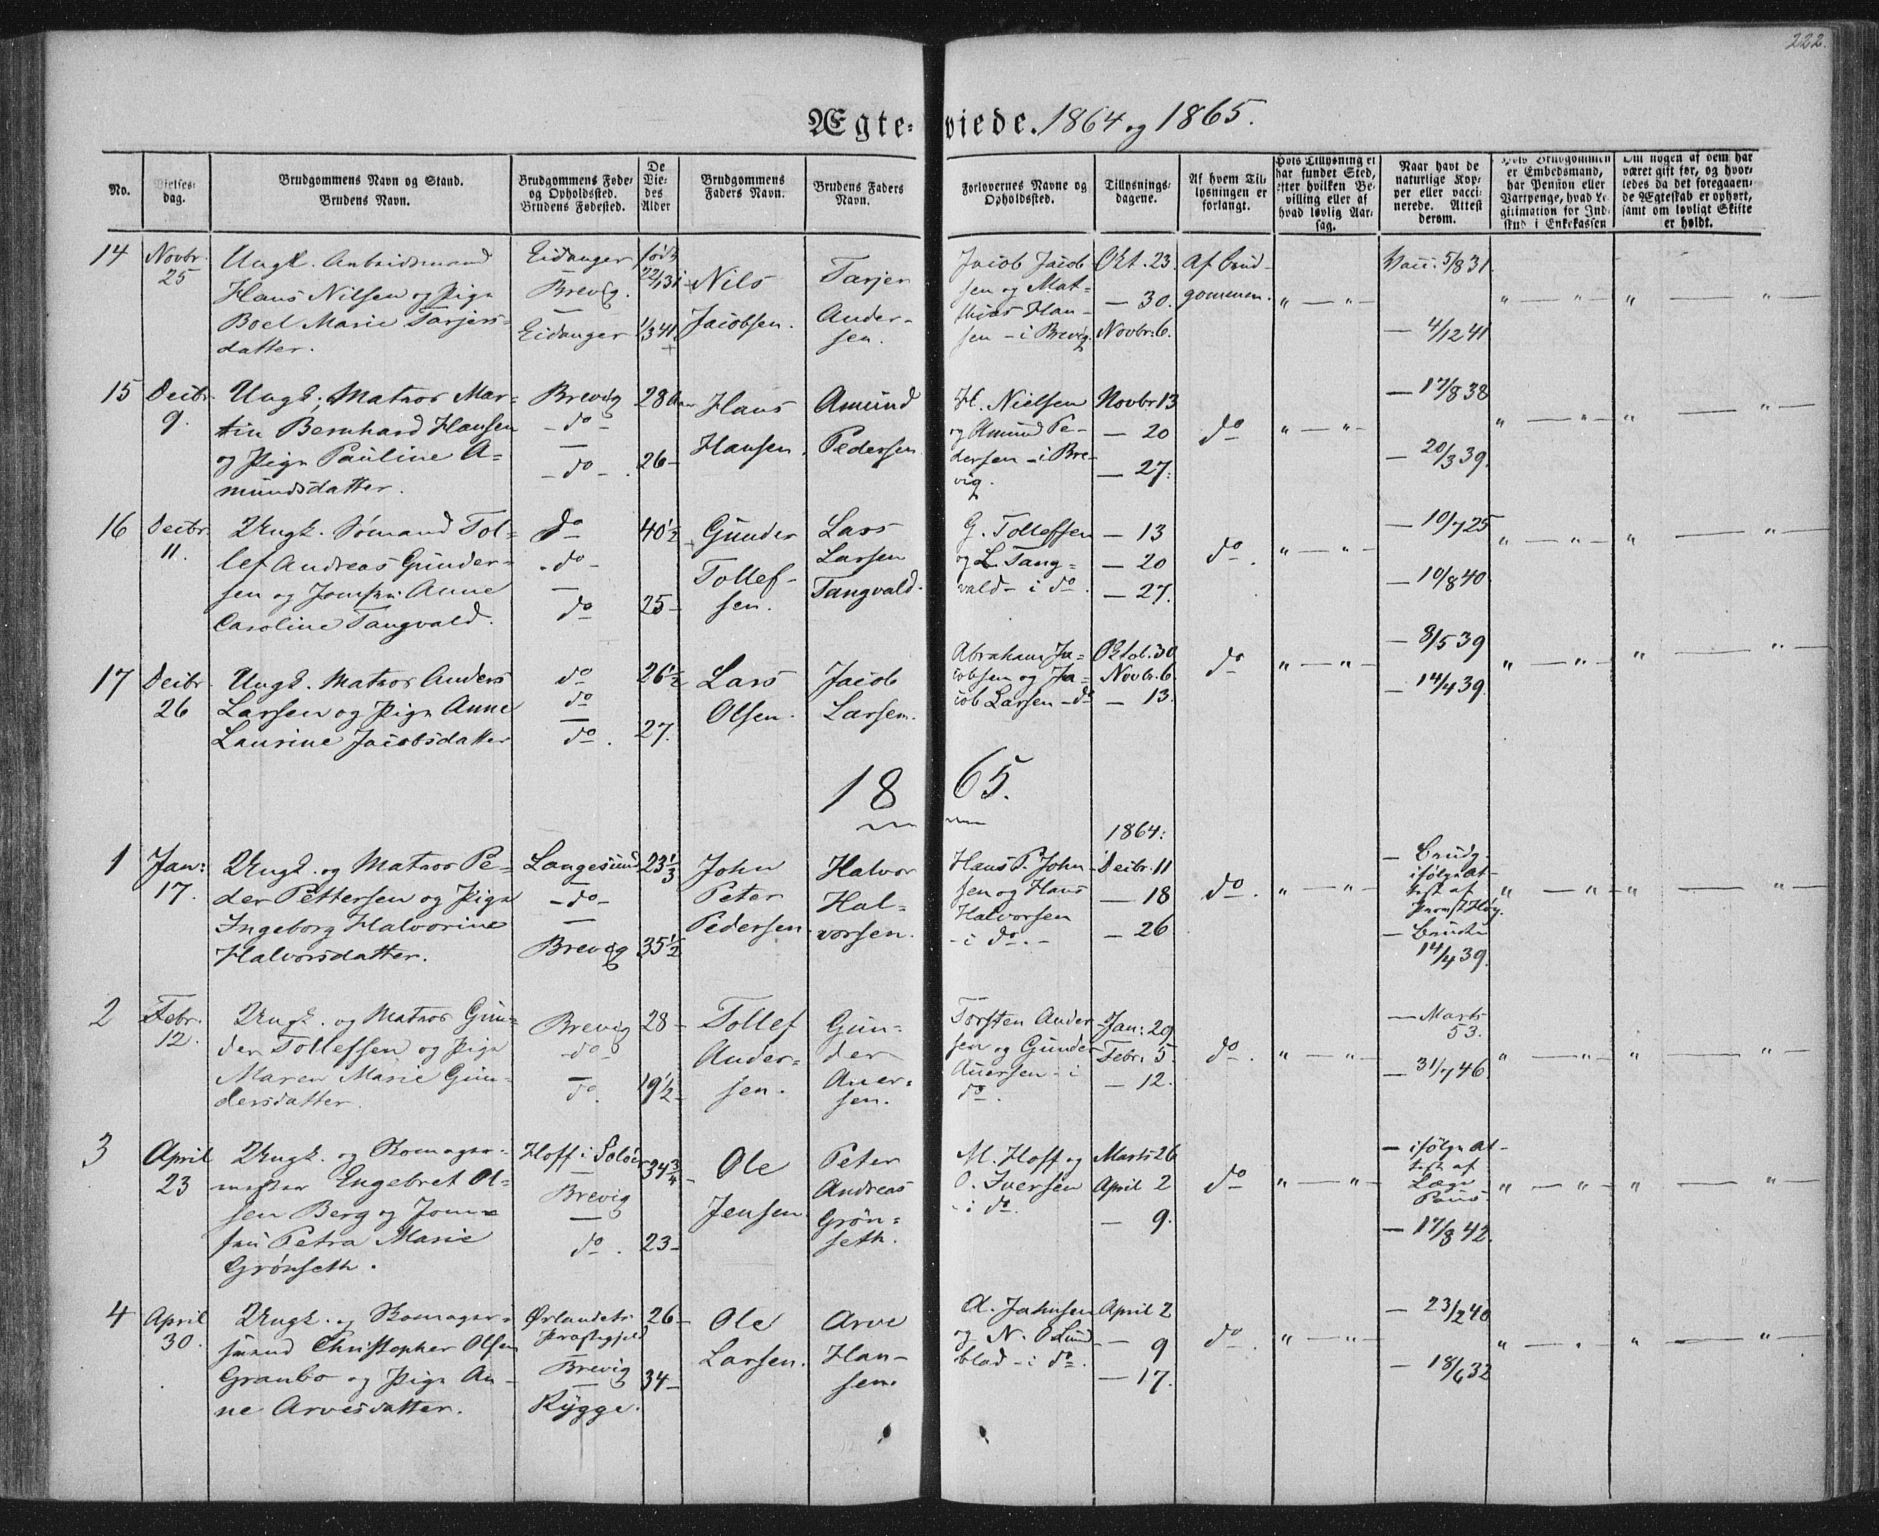 222.
Ægteviede. 1864 og 1865.
No.
Vielses-dag.
Brudgommens Navn og Stand.
Brudens Navn.
Brudgommens Føde- og Opholdssted.
Brudens Fødested.
De Viedes Alder
Brudgommens Faders Navn.
Brudens Faders Navn.
Forlovernes Navne og Opholdssted.
Tillysnings-dagene.
Af hvem Tillysningen er forlangt.
Hvis Tillysning ei har fundet Sted, efter hvilken Bevilling eller af hvad lovlig Aarsag.
Naar havt de naturlige Kopper eller vaccinerede. Attest derom.
Hvis Brudgommen er Embedsmand, har Pension eller Vartpenge, hvad Legitimation for Indskud i Enkekassen
Om nogen af dem har været gift før, og hvorledes da det foregaaende Ægteskab er ophørt, samt om lovligt Skifte er holdt.
14 Novbr. 25
Ungk. Arbeidsmand
Hans Nilsen og Pige
Boel Marie Tarjers-
datter.
Eidanger
Brevig.
Eidanger
født 22/1 31
1/3 41
Nils
Jacobsen.
Tarjer
Ander-
sen.
Jacob Jacob-
sen og Mat-
thias Han-
sen - i Brevig.
Okt. 23.
— 30.
Novbr. 6.
Af Brud-
gommen.
" — "
Vacc. 5/8 31.
— 4/12 41
" — "
" — "
15 Decbr. 9.
Ungk, Matros Mar-
tin Bernhard Hansen
og Pige Pauline A-
mundsdatter.
Brevig
- do -
—
- do -
28 Aar
26 -
Hans
Hansen.
Amund
Pedersen
H. Nielsen
og Amund Pe-
dersen - i Bre-
vig.
Novbr 13
— 20
— 27.
do
" — "
— 17/8 38
— 20/3 39.
" — "
" — "
16 Decbr. 11.
Ungk. Sømand Tol-
lef Andreas Gunder-
sen og Jomfru Anne
Caroline Tangvald.
do
- do -
—
do
40 1/2
25 -
Gunder
Tollef-
sen.
Lars
Larsen
Tangvald.
G. Tollefsen
og L. Tang-
vald - i do.
— 13
— 20
— 27.
do.
" — "
— 10/7 25
— 10/8 40
" — "
" — "
17 Decbr 26
Ungk. Matros Anders
Larsen og Pige Anne
Laurine Jacobsdatter
do
do
—
do.
26 1/2
27.
Lars
Olsen.
Jacob
Larsen.
Abraham Ja-
cobsen og Ja-
cob Larsen - do
Oktob. 30
Novbr. 6.
— 13.
do
" — "
— 8/5 39
— 14/4 39.
" — "
" — "
1865.
1864:
1 Jan: 17.
Ungk. og Matros Pe-
der Pettersen og Pige
Ingeborg Halvorine
Halvorsdatter.
Langesund
- do -
—
Brevig
23 1/3
35 1/2
John
Peter
Pedersen.
Halvor
Hal-
vorsen.
Hans P. John-
sen og Hans
Halvorsen
- i do. -
Decbr. 11
— 18
— 26
do.
" — "
— Brudg.
ifølge At-
test af
Provst Høy.
— Bruden
14/4 39.
" — "
" — "
2 Febr. 12.
Ungk. og Matros Gun-
der Tollefsen og Pige
Maren Marie Gun-
dersdatter.
Brevig
- do -
—
do.
28 -
19 1/2
Tollef
Ander-
sen.
Gun-
der
Auer-
sen.
Torsten Ander-
sen og Gunder
Auersen - i
do.
Jan: 29
Febr. 5
— 12.
do.
" — "
— Marts
53.
— 31/7 46.
" — "
" — "
3 April 23
Ungk. og Skomager-
mester Engebret Ol-
sen Berg og Jom-
fru Petra Marie
Grønseth.
Hoff i Soløer
—
Brevig
—
do.
34 3/4
23 -
Ole
Jensen.
Peter
Andreas
Grøn-
seth.
M. Hoff og
O. Iversen
- i do.
Marts 26
April 2
— 9.
do
" — "
— ifølge At-
test af
Læge
Paus
— 17/8 42.
" — "
" — "
4 April 30.
Ungk. og Skomager-
svend Christopher Olsen
Granbo og Pige An-
ne Arvesdatter.
Ørlandets
Præstegjeld
Brevig
—
Rygge.
26 -
34 -
Ole
Larsen.
Arve
Han-
sen.
A. Jahnsen
og N. O Lund-
blad - i do.
April 2
— 9
— 17.
do.
" — "
— 23/2 40
— 18/6 32
" — "
" — "